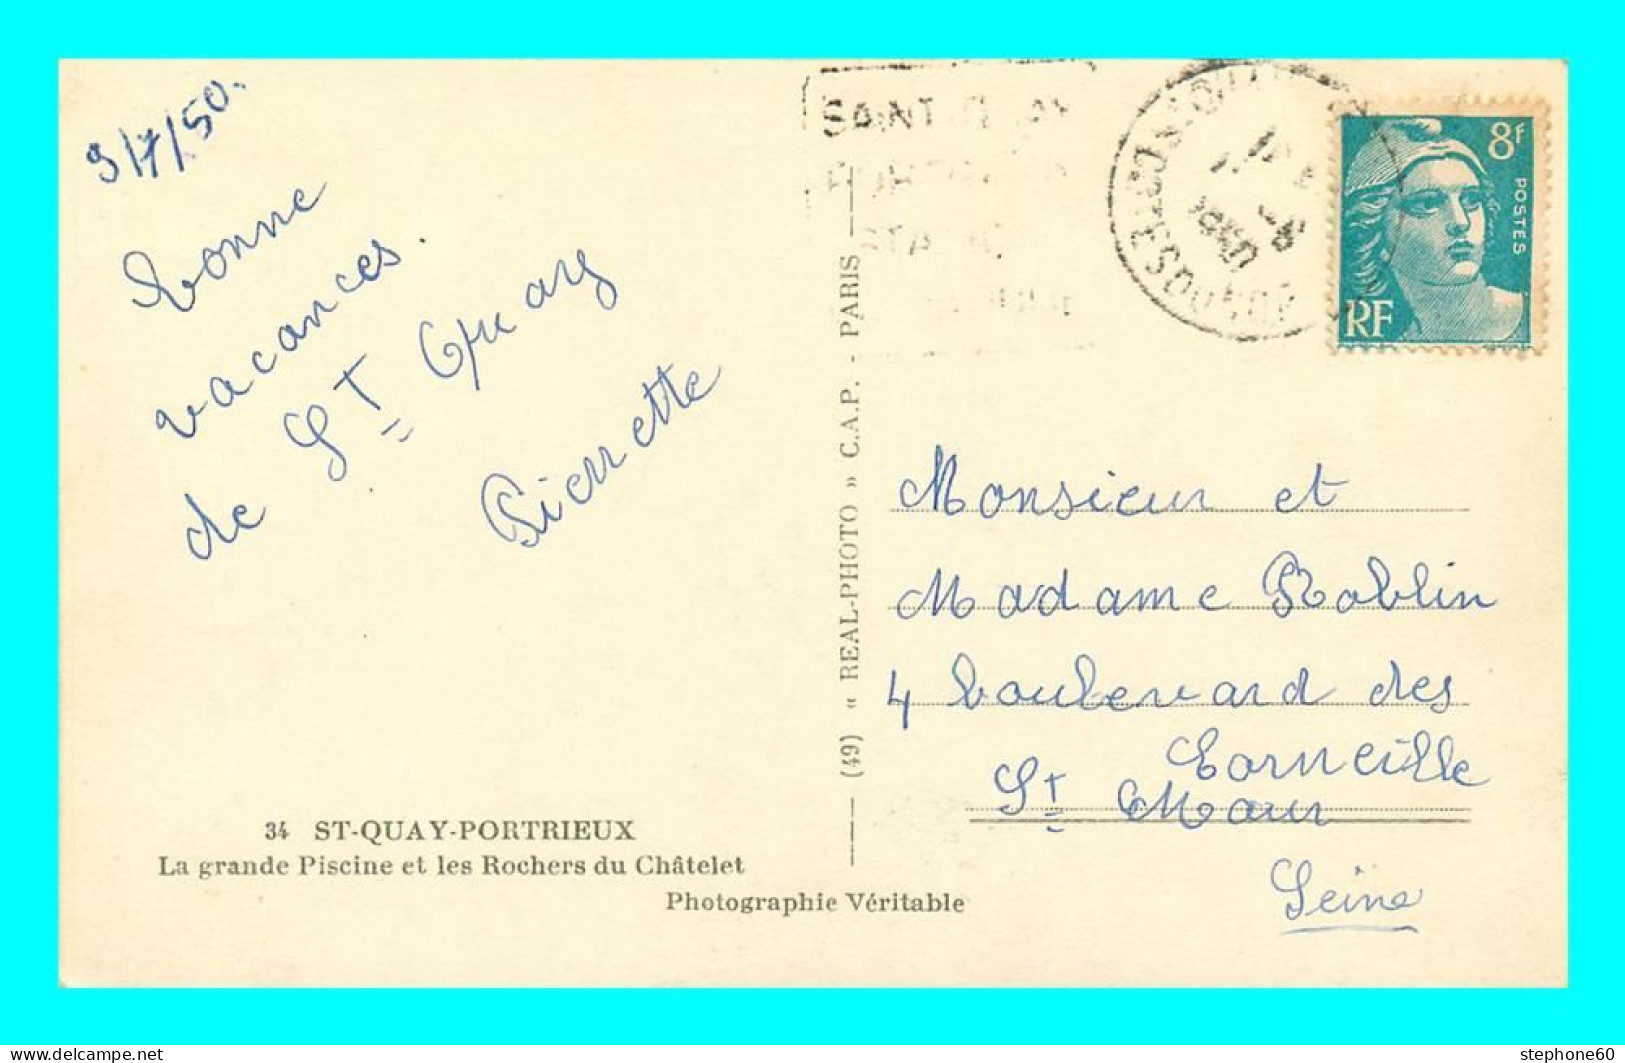 9/7/50.
bonne
vacances.
de St Quay
Pierrette
34 ST-QUAY-PORTRIEUX
La grande Piscine et les Rochers du Châtelet
Photographie Véritable
(49) « REAL-PHOTO » C.A.P. - PARIS
SAINT
1950
8f
POSTES
RF
Monsieur et
Madame Roblin
4 boulevard des
Corneille
St Maur
Seine
www.delcampe.net
stephone60